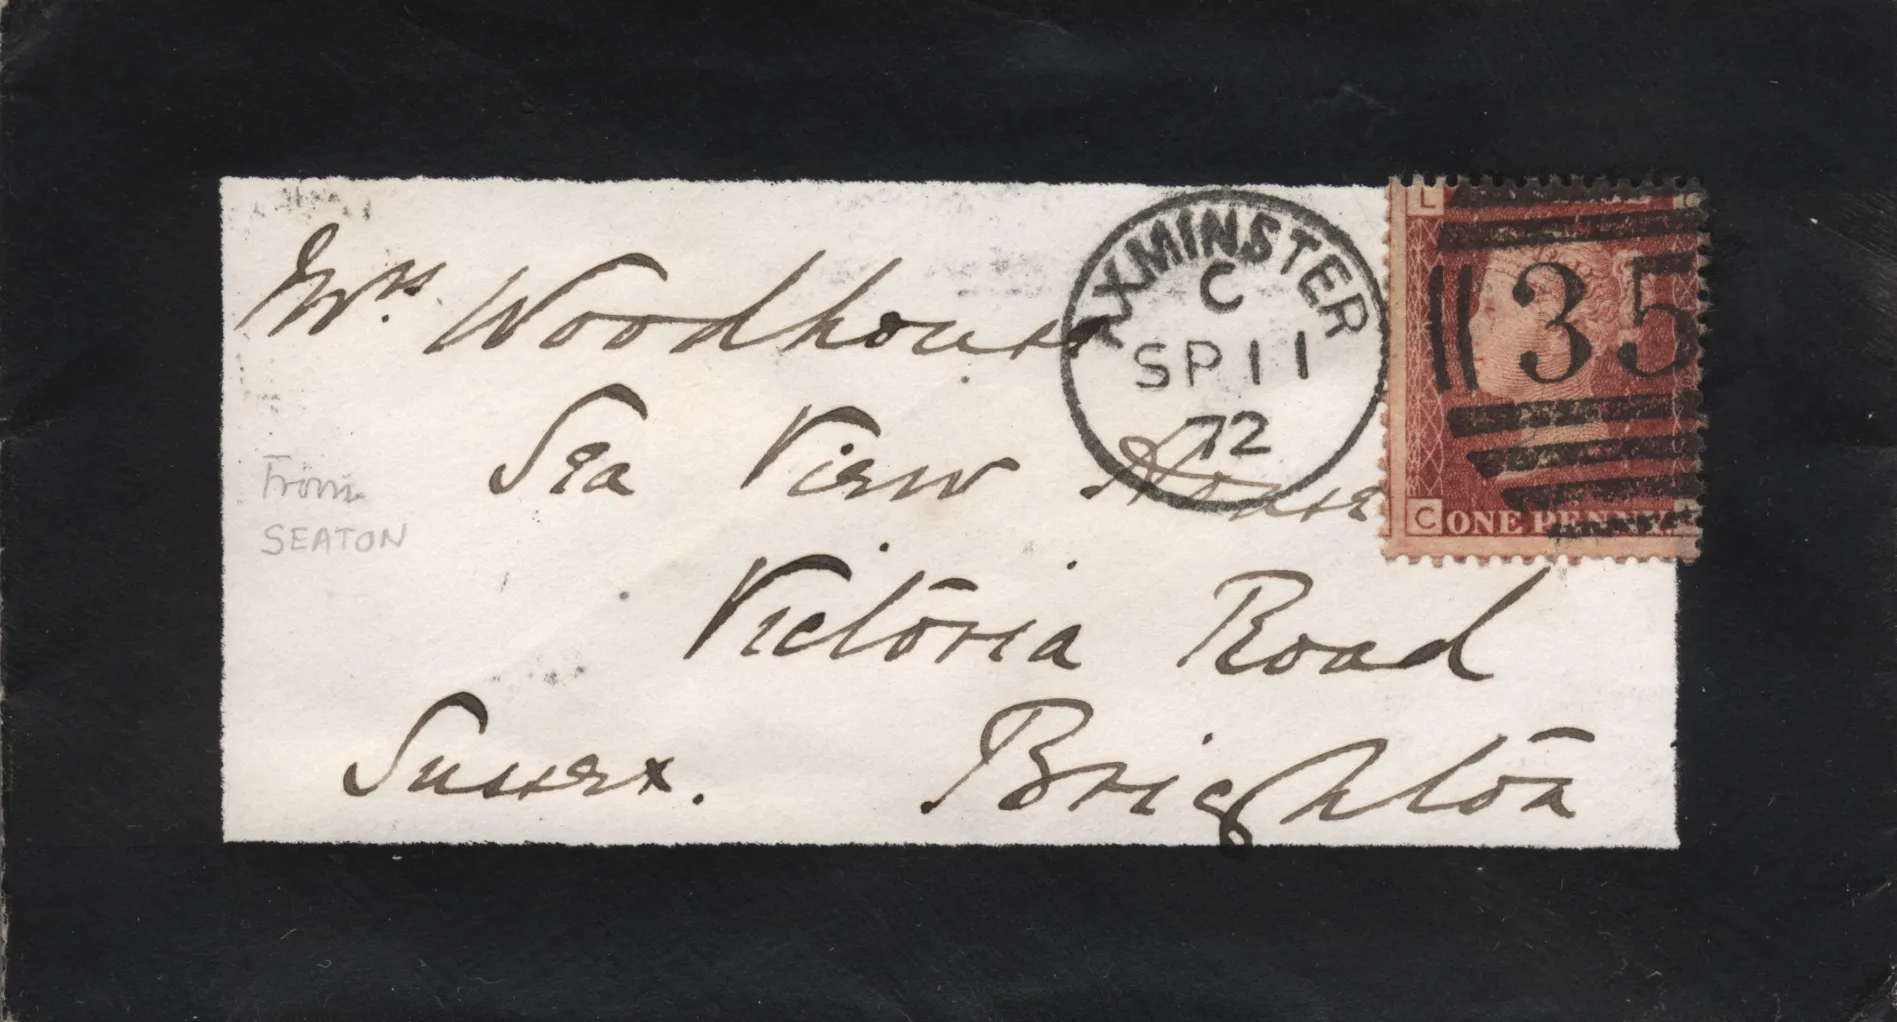 Mrs. Woodhouse
Sea View House
Victoria Road
Brighton
Sussex.
From
SEATON
AXMINSTER
C
SP 11
72
L
35
C ONE PENNY